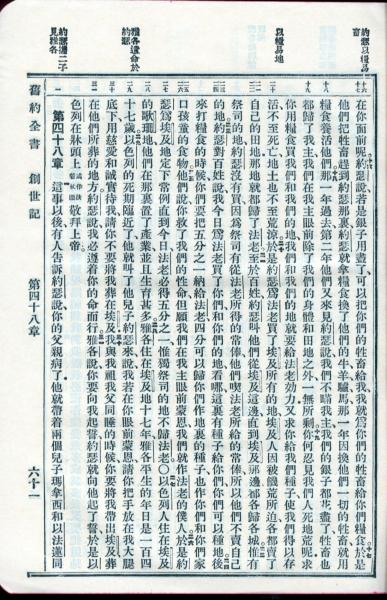 約瑟以糧易畜
以糧易地
雅各遺命於約瑟
約瑟攜二子見雅各
在你面前呢約瑟說若是銀子用盡了可以把你們的牲畜給我我就爲你們的牲畜給你們糧食於是
他們把牲畜趕到約瑟那裏約瑟就拿糧食換了他們的牛羊驢馬那一年因換他們一切的牲畜就用
糧食養活他們那一年過去第二年他們又來見約瑟說我們不瞞我主我們的銀子都花盡了牲畜也
都歸了我主我們在我主眼前除了我們的身體和田地之外一無所剩你何忍見我們人死地荒呢求
你用糧食買我們和我們的地我們和我們的地就要給法老効力又求你給我們種子使我們得以存
活不至死亡地土也不至荒涼於是約瑟爲法老買了埃及所有的地埃及人因被饑荒所迫各都賣了
自己的田地那地就都歸了法老至於百姓約瑟叫他們從埃及這邊直到埃及那邊都各歸各城惟有
祭司的地約瑟沒有買因爲祭司有從法老所得的常俸他們喫法老所給的常俸所以他們不賣自己
的地約瑟對百姓說我今日爲法老買了你們和你們的地看哪這裏有種子給你們你們可以種地後
來打糧食的時候你們要把五分之一納給法老四分可以歸你們作地裏的種子也作你們和你們家
口孩童的食物他們說你救了我們的性命但願我們在我主眼前蒙恩我們就作法老的僕人於是約
瑟爲埃及地定下常例直到今日法老必得五分之一惟獨祭司的地不歸法老○以色列人住在埃及
的歌珊地他們在那裏置了產業並且生育甚多雅各住在埃及地十七年雅各平生的年日是一百四
十七歲以色列的死期臨近了他就叫了他兒子約瑟來說我若在你眼前蒙恩請你把手放在我大腿
底下用慈愛和誠實待我請你不要將我葬在埃及我與我祖我父同睡的時候你要將我帶出埃及葬
在他們所葬的地方約瑟說我必遵着你的命而行雅各說你要向我起誓約瑟就向他起了誓於是以
色列在牀頭上敬拜上帝
第四十八章 這事以後有人告訴約瑟說你的父親病了他就帶着兩個兒子瑪拿西和以法蓮同
舊約全書 創世記 第四十八章 六十一